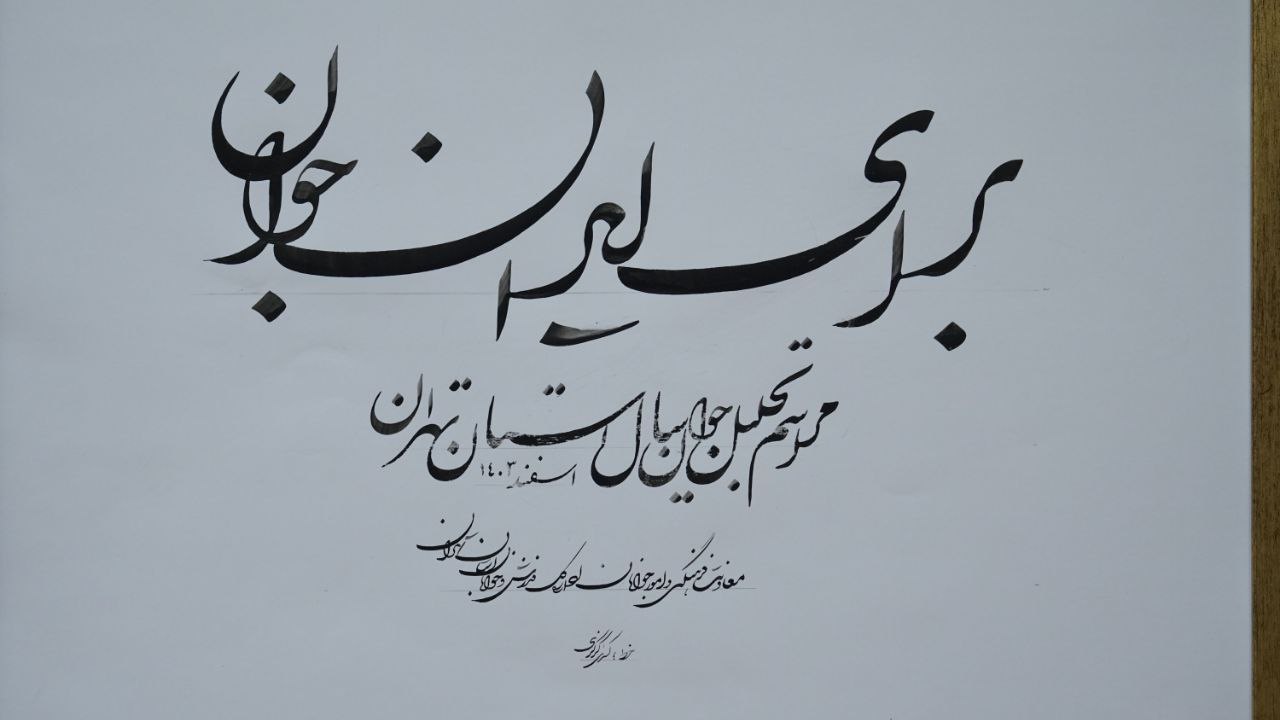 برای ایران جوان
مراسم تجلیل جوانان سال استان تهران
اسفند ۱٤۰۳
معاونت فرهنگی و امور جوانان اداره کل ورزش و جوانان استان تهران
خط :